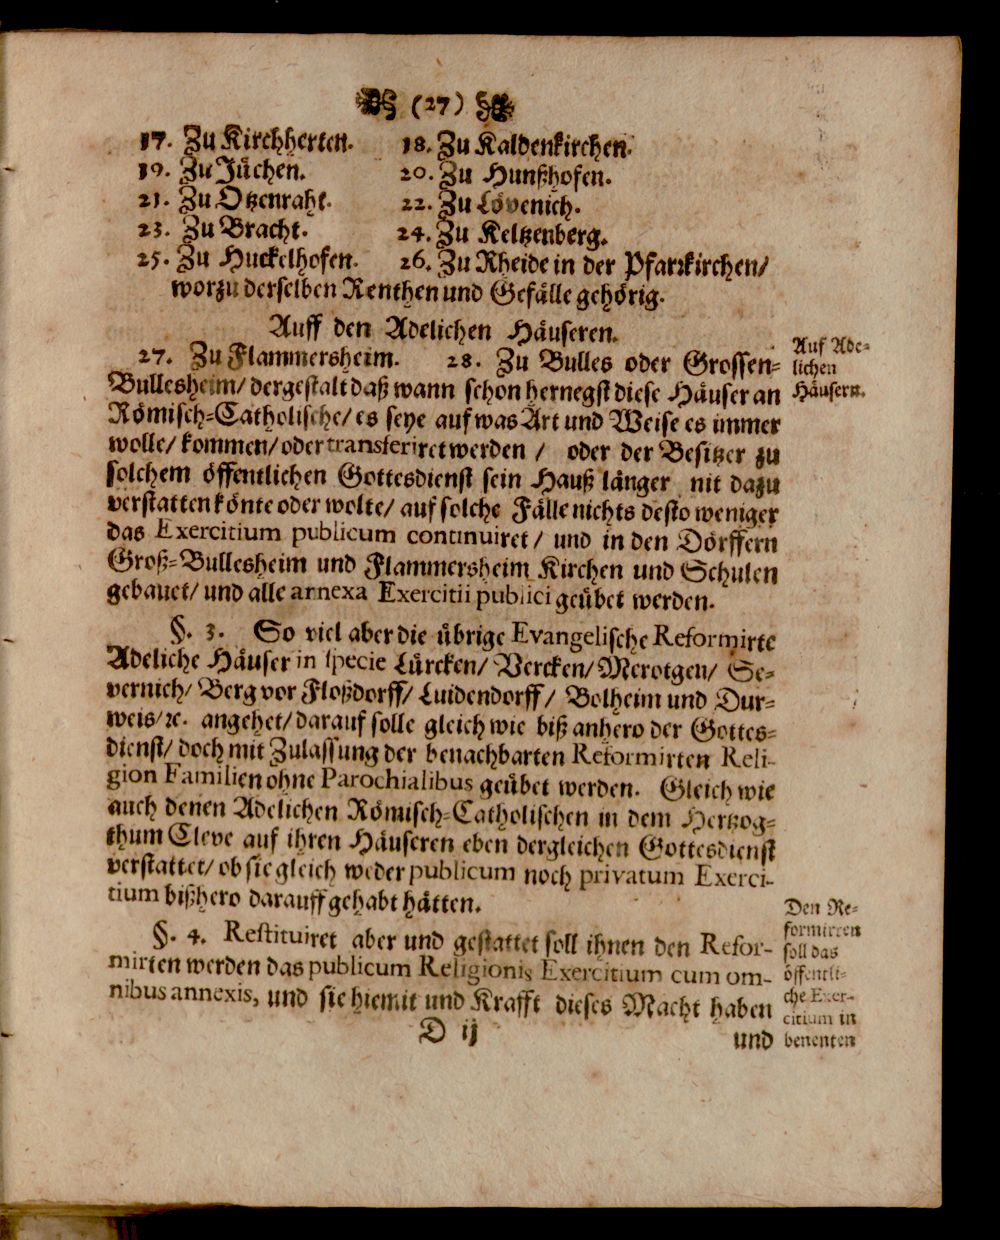 (27)
17. Zu Kirchherten. 18. Zu Kaldenkirchen.
19. Zu Jüchen. 20. Zu Hunßhofen.
21. Zu Otzenraht. 22. Zu Lövenich.
23. Zu Bracht. 24. Zu Keltzenberg.
25. Zu Huckelhofen. 26. Zu Rheide in der Pfarrkirchen/
worzu derselben Renthen und Gefälle gehörig.
Auff den Adelichen Häuseren.
27. Zu Flammersheim. 28. Zu Bulles oder Grossen-
Bullesheim/ dergestalt daß wann schon hernegst diese Häuser an
Römisch-Catholische/ es seye auf was Art und Weise es immer
wolle/ kommen/ oder transferiret werden / oder der Besitzer zu
solchem öffentlichen Gottesdienst sein Hauß länger nit dazu
verstatten könte oder wolte/ auf solche Fälle nichts desto weniger
das Exercitium publicum continuiret / und in den Dörffern
Groß-Bullesheim und Flammersheim Kirchen und Schulen
gebauet/ und alle annexa Exercitii publici geübet werden.
Auf Ade-
lichen
Häusern.
§. 3. So viel aber die übrige Evangelische Reformirte
Adeliche Häuser in specie Lürcken/ Vercken/ Merotgen/ Se-
vernich/ Berg vor Floßdorff/ Luidendorff/ Bolheim und Dur-
weis/ ꝛc. angehet/ darauf solle gleich wie biß anhero der Gottes-
dienst/ doch mit Zulassung der benachbarten Reformirten Reli-
gion Familien ohne Parochialibus geübet werden. Gleich wie
auch denen Adelichen Römisch-Catholischen in dem Hertzog-
thum Cleve auf ihren Häuseren eben dergleichen Gottesdienst
verstattet/ ob sie gleich weder publicum noch privatum Exerci-
tium bißhero darauff gehabt hätten.
§. 4. Restituiret aber und gestattet soll ihnen den Refor-
mirten werden das publicum Religionis Exercitium cum om-
nibus annexis, und sie hiemit und Krafft dieses Macht haben
Den Re-
formirten
soll das
öffentli-
che Exer-
citium in
benenten
D ij
und